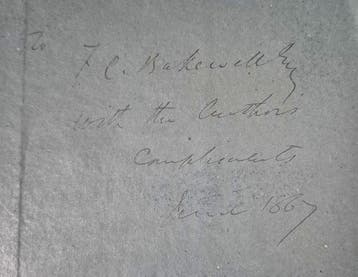 To
F. C. Bakewell Esq
with the Authors
compliments
June 1867